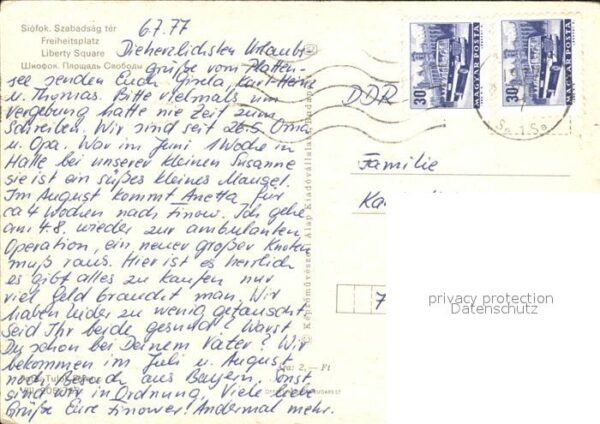 Siófok. Szabadság tér
Freiheitsplatz
Liberty Square
Шиофок. Площадь Свободы
6.7.77
Die herzlichsten Urlaubs
grüße vom Platten-
see senden Euch Gisela Karl-Heinz
u. Thomas. Bitte vielmals um
Vergebung hatte nie Zeit zum
Schreiben. Wir sind seit 26.5. Oma
u. Opa. War im Juni 1 Woche in
Halle bei unserer kleinen Susanne
sie ist ein süßes kleines Mädgel.
Im August kommt Anetta für
ca 4 Wochen nach Finow. Ich gehe
am 4.8. wieder zur ambulanten
Operation, ein neuer großer Knoten
muß raus. Hier ist es herrlich
es gibt alles zu kaufen nur
viel Geld braucht man, Wir
haben leider zu wenig getauscht.
Seid Ihr beide gesund? Warst
Du schon bei Deinem Vater? Wir
bekommen im Juli u. August
noch Besuch aus Bayern. Sonst
sind wir in Ordnung, Viele liebe
Grüße Eure Finower! Andermal mehr.
© Képzőművészeti Alap Kiadóvállalata, Budapest
Ára: 2,— Ft
DDR
Familie
Ka
7
30
MAGYAR POSTA
30
MAGYAR POSTA
privacy protection
Datenschutz